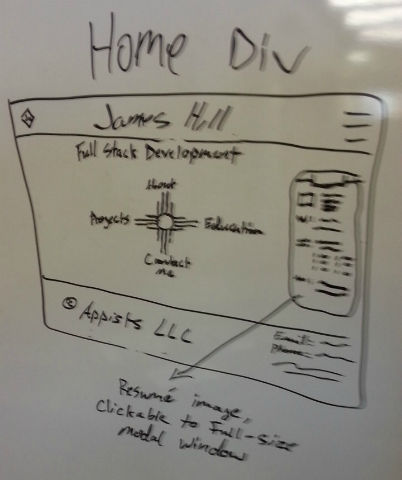 Home Div
James Hill
Full Stack Development
Projects
Education
Contact
Me
© Appists LLC
Email:
Phone:
Resumé image,
Clickable to Full-size
modal window